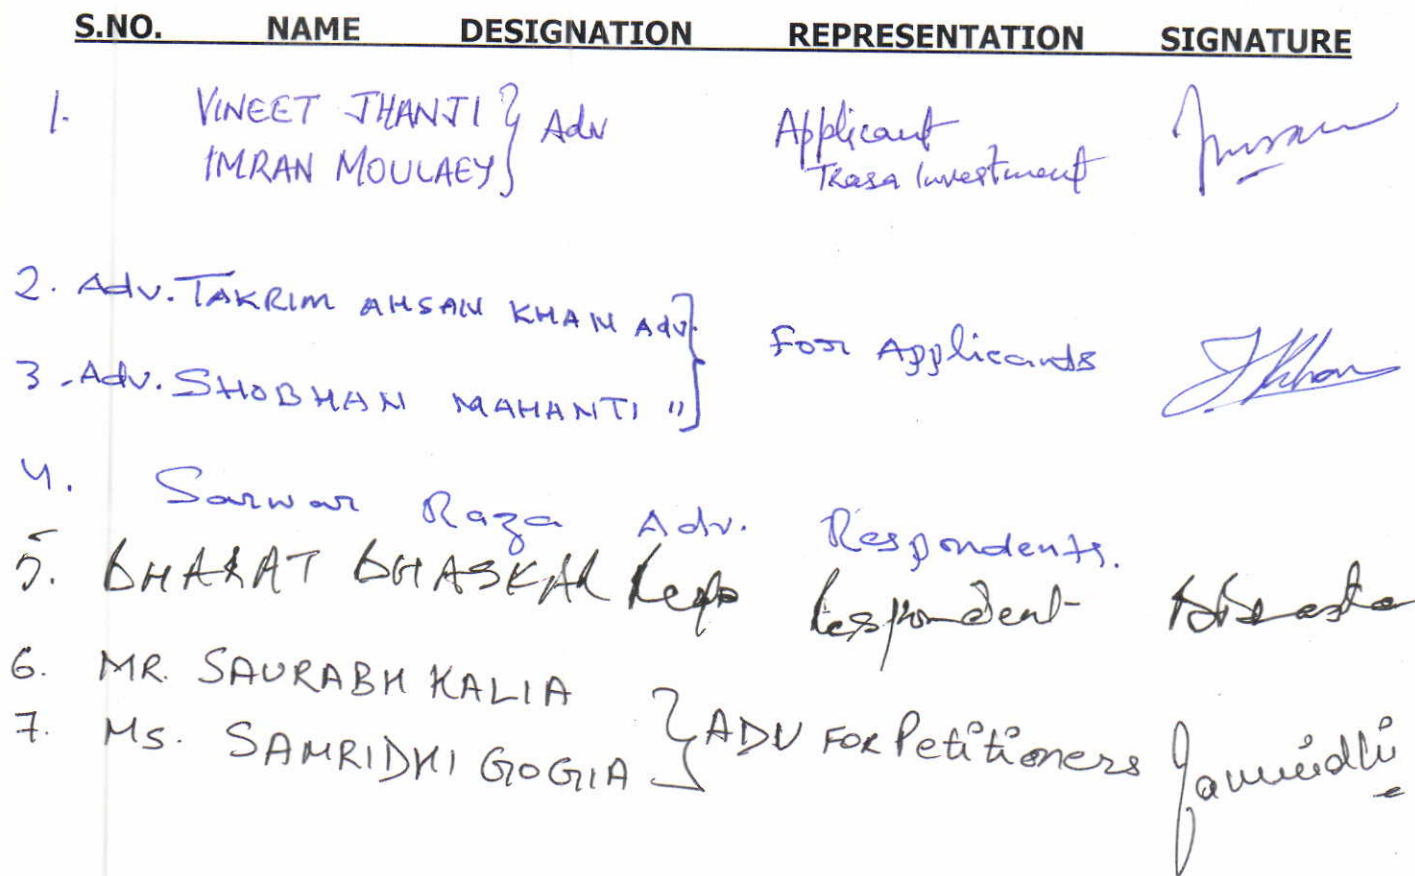 S.NO. NAME DESIGNATION REPRESENTATION SIGNATURE
1. VINEET JHANJI } Adv Applicant
IMRAN MOULAEY Trasa Investment
2. Adv. TAKRIM AHSAN KHAN Adv.
} For Applicants TKhan
3. Adv. SHOBHAN MAHANTI "
4. Sarwar Raza Adv. Respondents.
5. BHARAT BHASKAR Respondent
6. MR. SAURABH KALIA
} ADV FOR Petitioners Samridhi
7. Ms. SAMRIDHI GOGIA